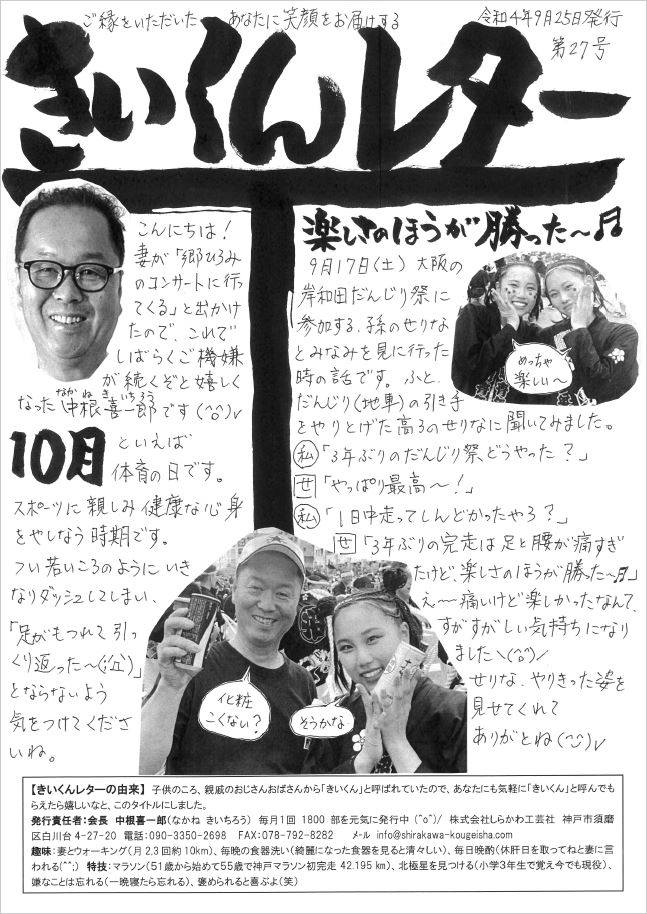 ご縁をいただいた あなたに笑顔をお届けする
令和4年9月25日発行
第27号
きいくんレター
こんにちは!
妻が「郷ひろみ
のコンサートに行っ
てくる」と出かけ
たので、これで
しばらくご機嫌
が続くぞと嬉しく
なった 中根喜一郎です(^o^)v
なかね きいちろう
10月 といえば
体育の日です。
スポーツに親しみ 健康な心身
をやしなう時期です。
つい若いころのように いき
なりダッシュしてしまい、
「足がもつれて 引っ
くり返った〜(;泣)」
とならないよう
気をつけてくださ
いね。
楽しさのほうが勝った〜♬
9月17日(土) 大阪の
岸和田だんじり祭に
参加する、孫のせりな
とみなみを見に行った
時の話です。ふと、
だんじり(地車)の引き手
をやりとげた高3のせりなに聞いてみました。
めっちゃ
楽しい〜
私「3年ぶりのだんじり祭、どうやった?」
せ「やっぱり最高〜!」
私「1日中走ってしんどかったやろ?」
せ「3年ぶりの完走は足と腰が痛すぎ
たけど、楽しさのほうが勝った〜♬」
え〜痛いけど楽しかったなんて、
すがすがしい気持ちになり
ました\(^o^)/
せりな、やりきった姿を
見せてくれて
ありがとね(^_^)v
化粧
こくない?
そうかな
【きいくんレターの由来】 子供のころ、親戚のおじさんおばさんから「きいくん」と呼ばれていたので、あなたにも気軽に「きいくん」と呼んでも
らえたら嬉しいなと、このタイトルにしました。
発行責任者:会長 中根喜一郎(なかね きいちろう) 毎月1回 1800 部を元気に発行中 (^o^)/ 株式会社しらかわ工芸社 神戸市須磨
区白川台 4-27-20 電話:090-3350-2698 FAX:078-792-8282 メール info@shirakawa-kougeisha.com
趣味:妻とウオーキング(月2,3回約10km)、毎晩の食器洗い(綺麗になった食器を見ると清々しい)、毎日晩酌(休肝日を取ってねと妻に言
われる(^^;) 特技:マラソン(51歳から始めて55歳で神戸マラソン初完走 42.195 km)、北極星を見つける(小学3年生で覚え今でも現役)、
嫌なことは忘れる(一晩寝たら忘れる)、褒められると喜ぶよ(笑)